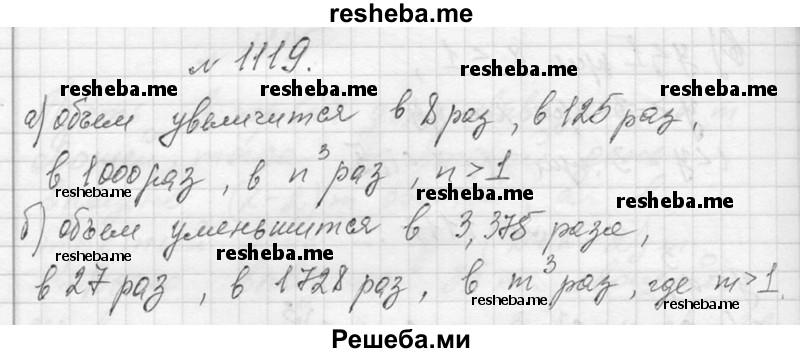 resheba.me
№ 1119.
resheba.me resheba.me resheba.me
а) объем увеличится в 8 раз, в 125 раз,
resheba.me
в 1000 раз, в n³ раз, n>1
resheba.me resheba.me resheba.me
б) объем уменьшится в 3,375 раза,
resheba.me
в 27 раз, в 1728 раз, в m³ раз, где m>1.
resheba.me resheba.me
Решеба.ми